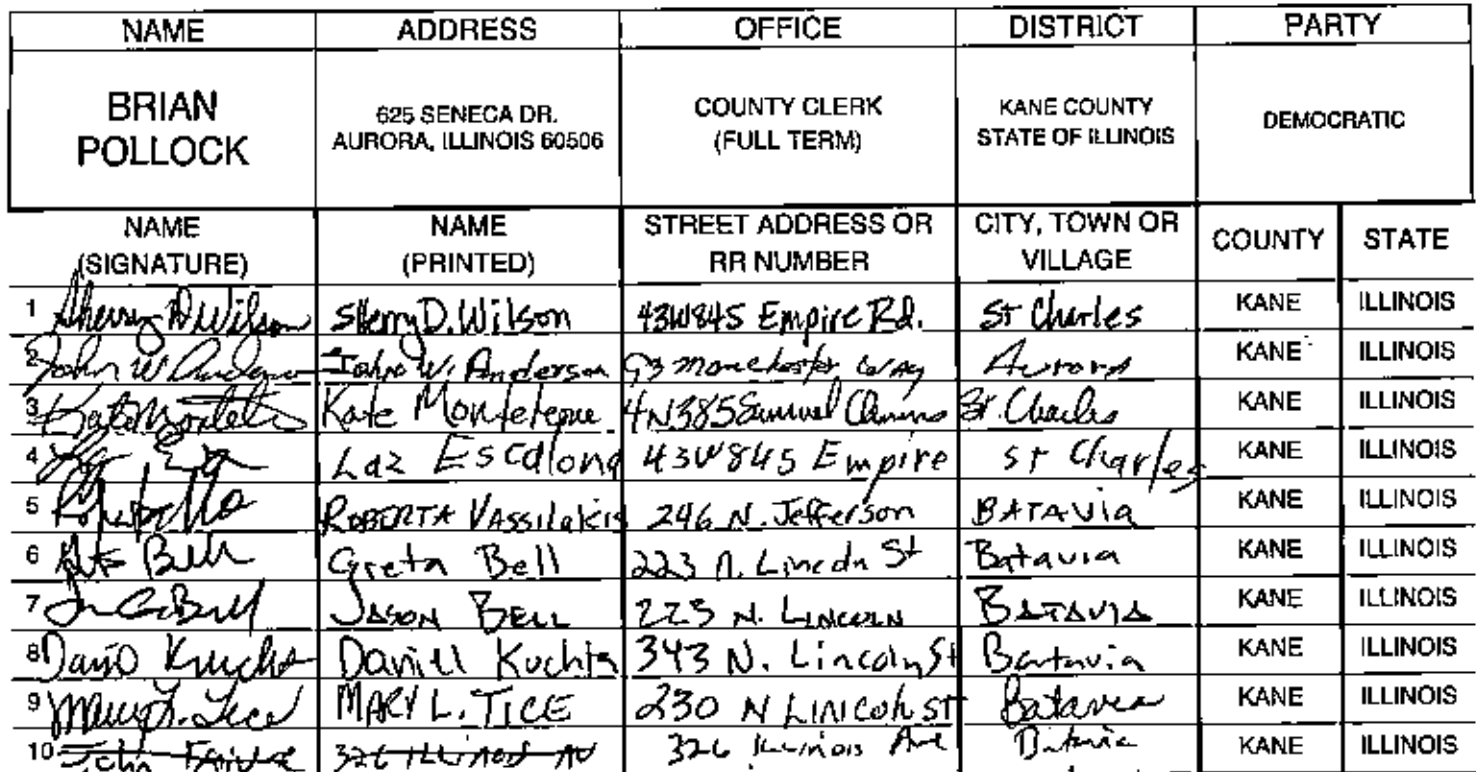 NAME ADDRESS OFFICE DISTRICT PARTY
BRIAN POLLOCK 625 SENECA DR. AURORA, ILLINOIS 60506 COUNTY CLERK (FULL TERM) KANE COUNTY STATE OF ILLINOIS DEMOCRATIC
NAME (SIGNATURE) NAME (PRINTED) STREET ADDRESS OR RR NUMBER CITY, TOWN OR VILLAGE COUNTY STATE
1 Sherry D Wilson Sherry D. Wilson 43W845 Empire Rd. St Charles KANE ILLINOIS
2 John W Anderson John W. Anderson 93 Manchester Way Aurora KANE ILLINOIS
3 Kate 4N385 Samuel St. Charles KANE ILLINOIS
4 Laz Escalona 43W845 Empire St Charles KANE ILLINOIS
5 ROBERTA VASSILAKIS 246 N. Jefferson BATAVIA KANE ILLINOIS
6 Bell Greta Bell 223 N. Lincoln St Batavia KANE ILLINOIS
7 JASON BELL 223 N. LINCOLN BATAVIA KANE ILLINOIS
8 Kuchta 343 N. Lincoln St Batavia KANE ILLINOIS
9 Mary L. Tice MARY L. TICE 230 N LINCOLN ST Batavia KANE ILLINOIS
10 John 326 ILLINOIS AV 326 Illinois Ave Batavia KANE ILLINOIS